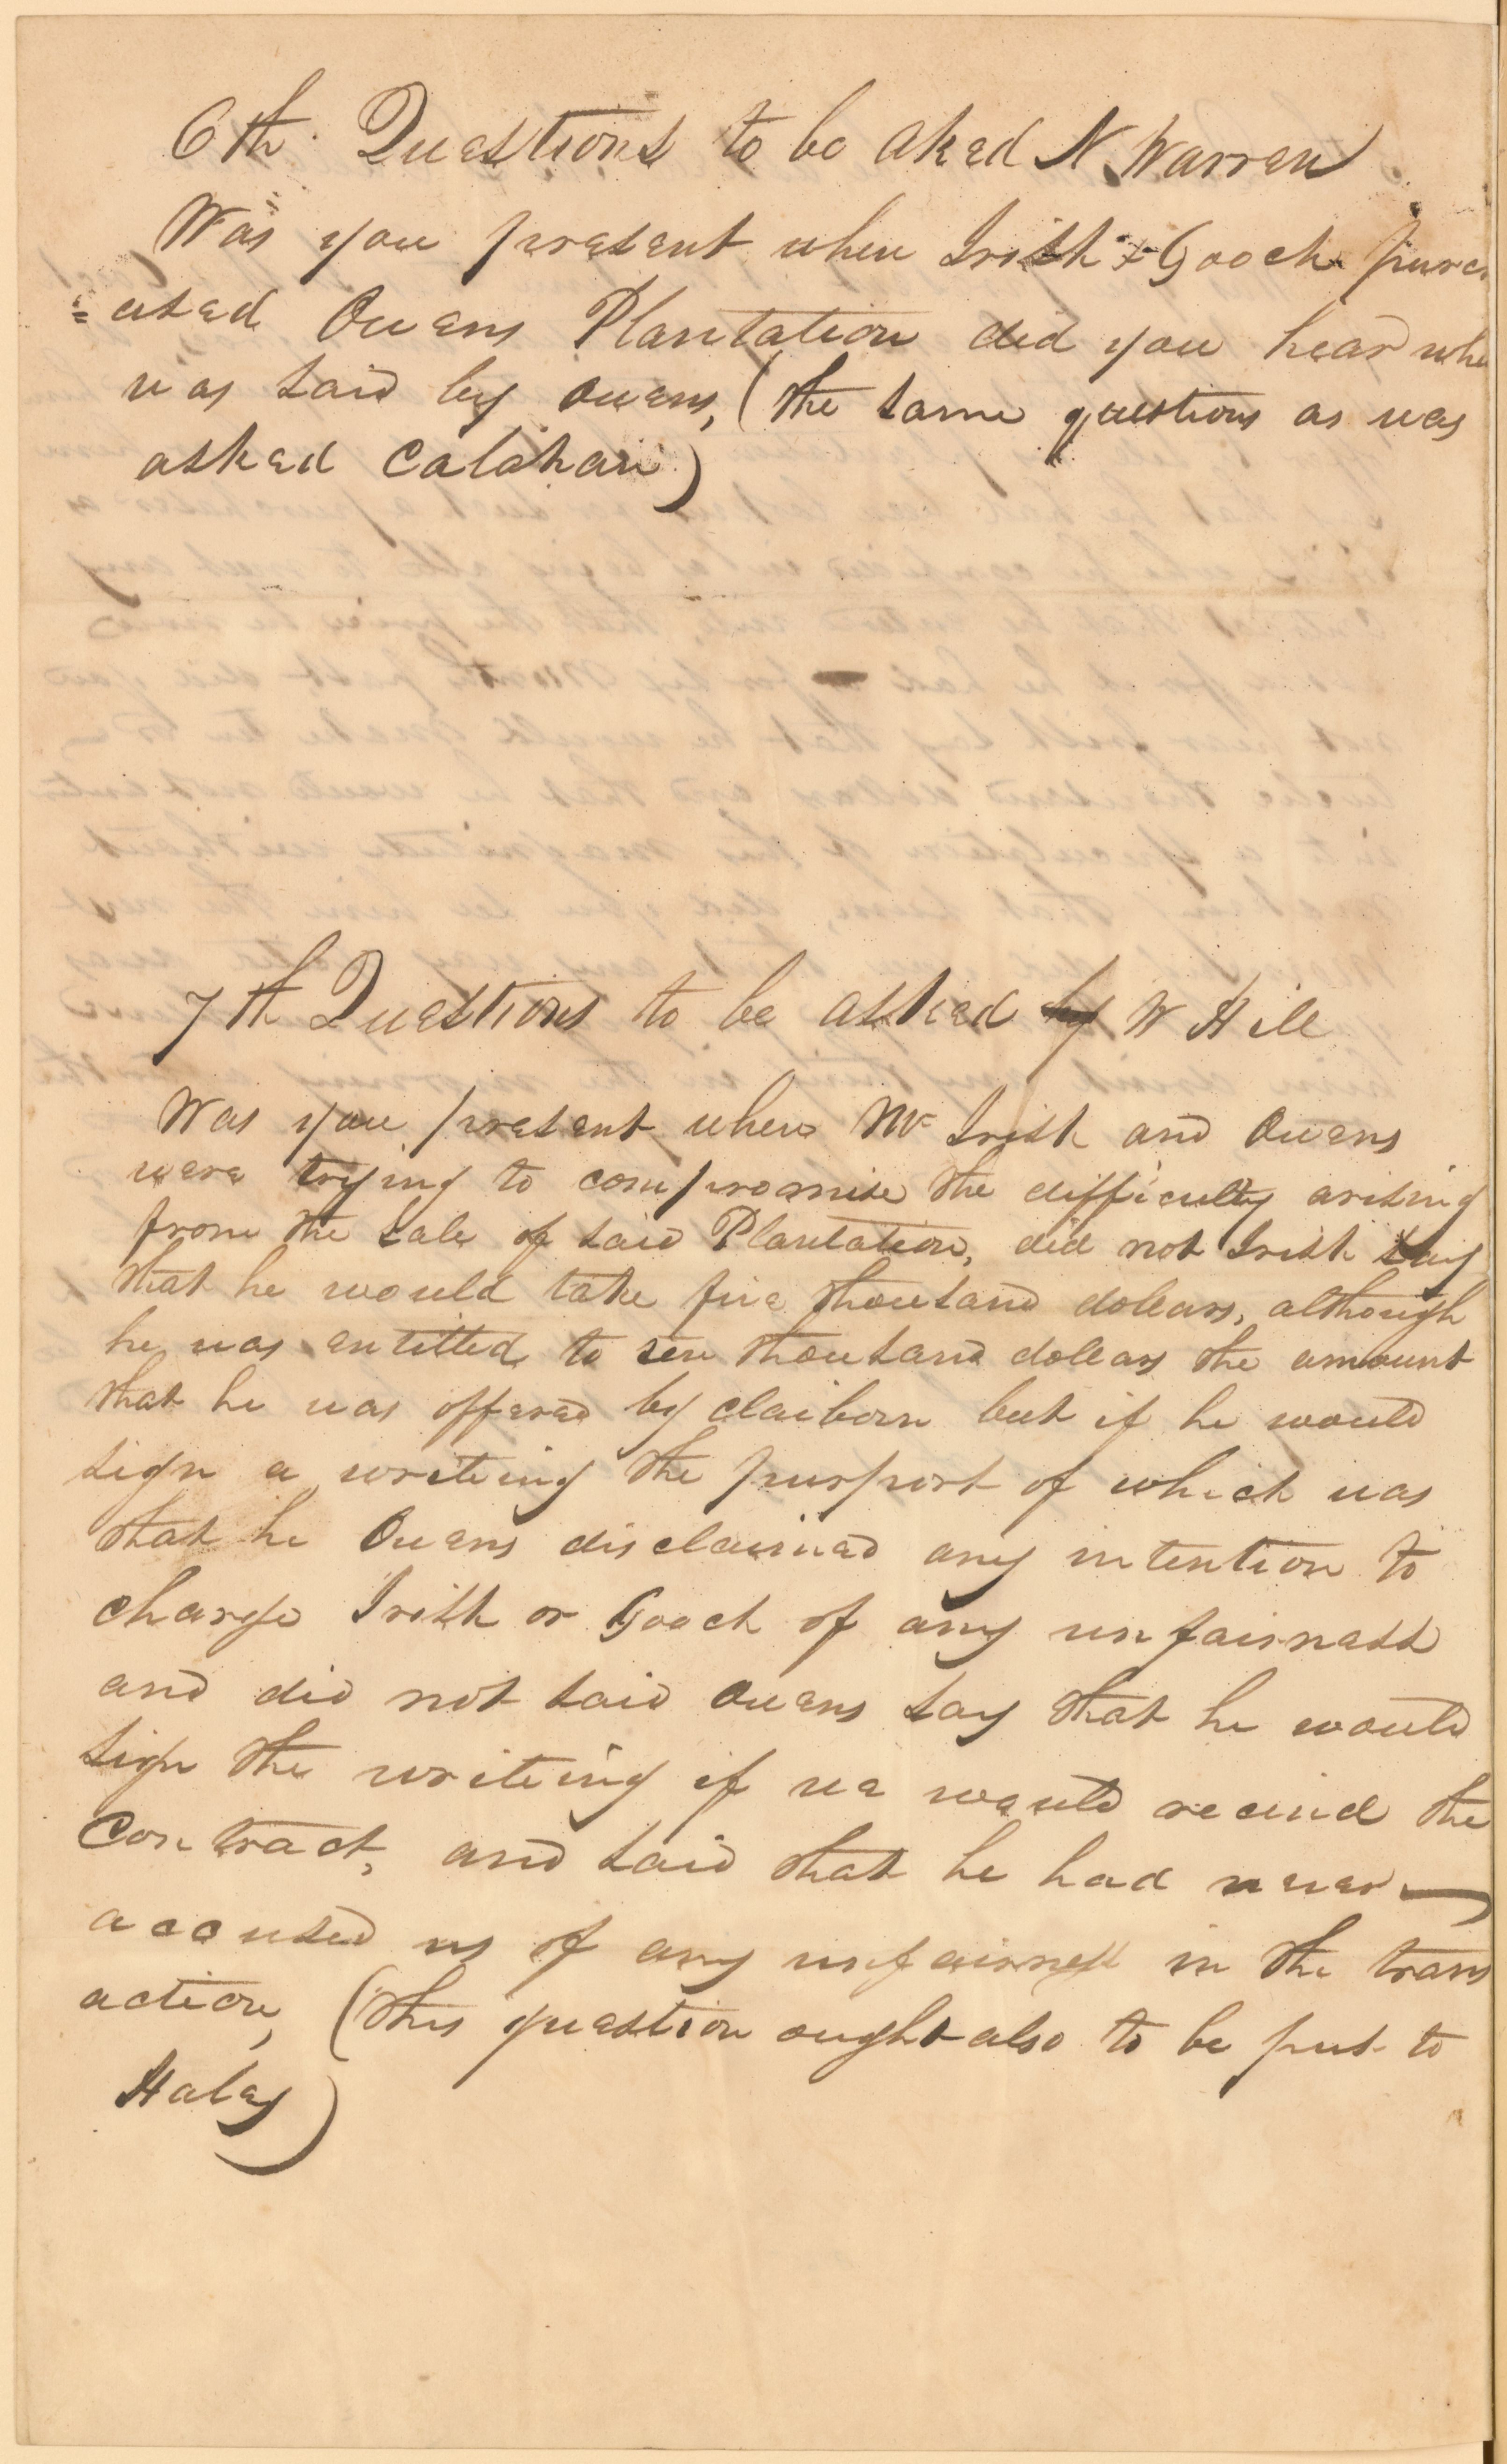 6th. Questions to be aked N Warren
Was you present when Irish & Gooch purch
=ased Owens Plantation did you hear wha
was said by Owens, (the same questions as was
asked Calahan)
7th Questions to be asked by W Hill
Was you present when Mr Irish and Owens
were trying to compromise the difficulty arising
from the sale of said Plantation, did not Irish say
that he would take five thousand dollars, although
he was entitled to ten thousand dollars the amount
that he was offered by Claiborn but if he would
sign a writeing the purport of which was
that he Owens disclaimed any intention to
charge Irish or Gooch of any unfairness
and did not said Owens say that he would
sign the writeing if we would recind the
Contract, and said that he had never
accused us of any unfairness in the trans
action, (this question ought also to be put to
Haley)